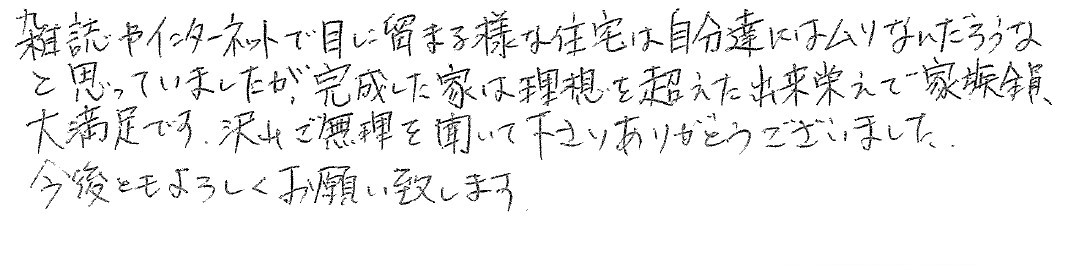 雑誌やインターネットで目に留まる様な住宅は自分達にはムリなんだろうな
と思っていましたが、完成した家は理想を超えた出来栄えで家族全員、
大満足です。沢山ご無理を聞いて下さりありがとうございました。
今後ともよろしくお願い致します